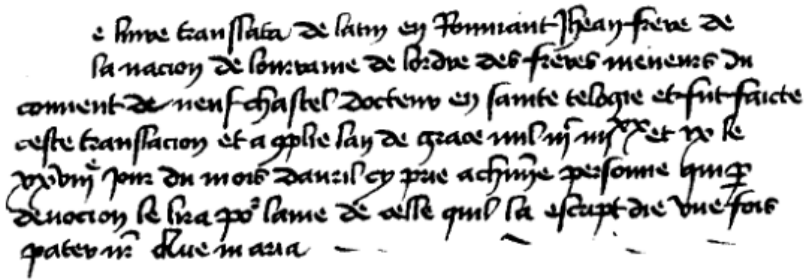 e livre translata de latin en Rommant Jhean frere de
la nacion de lourraine de lordre des freres meneurs du
couuent de neufchastel docteur en sainte teologie et fut faicte
ceste translacion et aplie lan de grace mil iijc iiijxx et ix le
xxviije jour du mois dauril cy prie a chune personne qui p
deuocion le lira por lame de celle quil la escript die vne fois
pater nr Aue maria